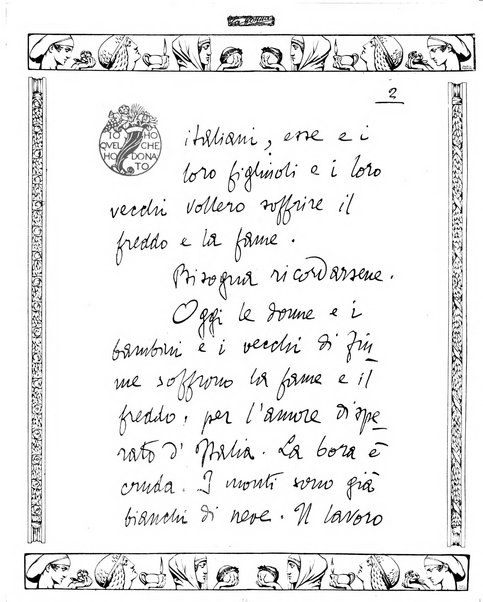 2
IO HO
QVEL CHE
HO DONA
TO
italiani, esse e i
loro figliuoli e i loro
vecchi vollero soffrire il
freddo e la fame.
Bisogna ricordarsene.
Oggi le donne e i
bambini e i vecchi di Fiu
me soffrono la fame e il
freddo, per l'amore dispe
rato d'Italia. La bora è
cruda. I monti sono già
bianchi di neve. Il lavoro